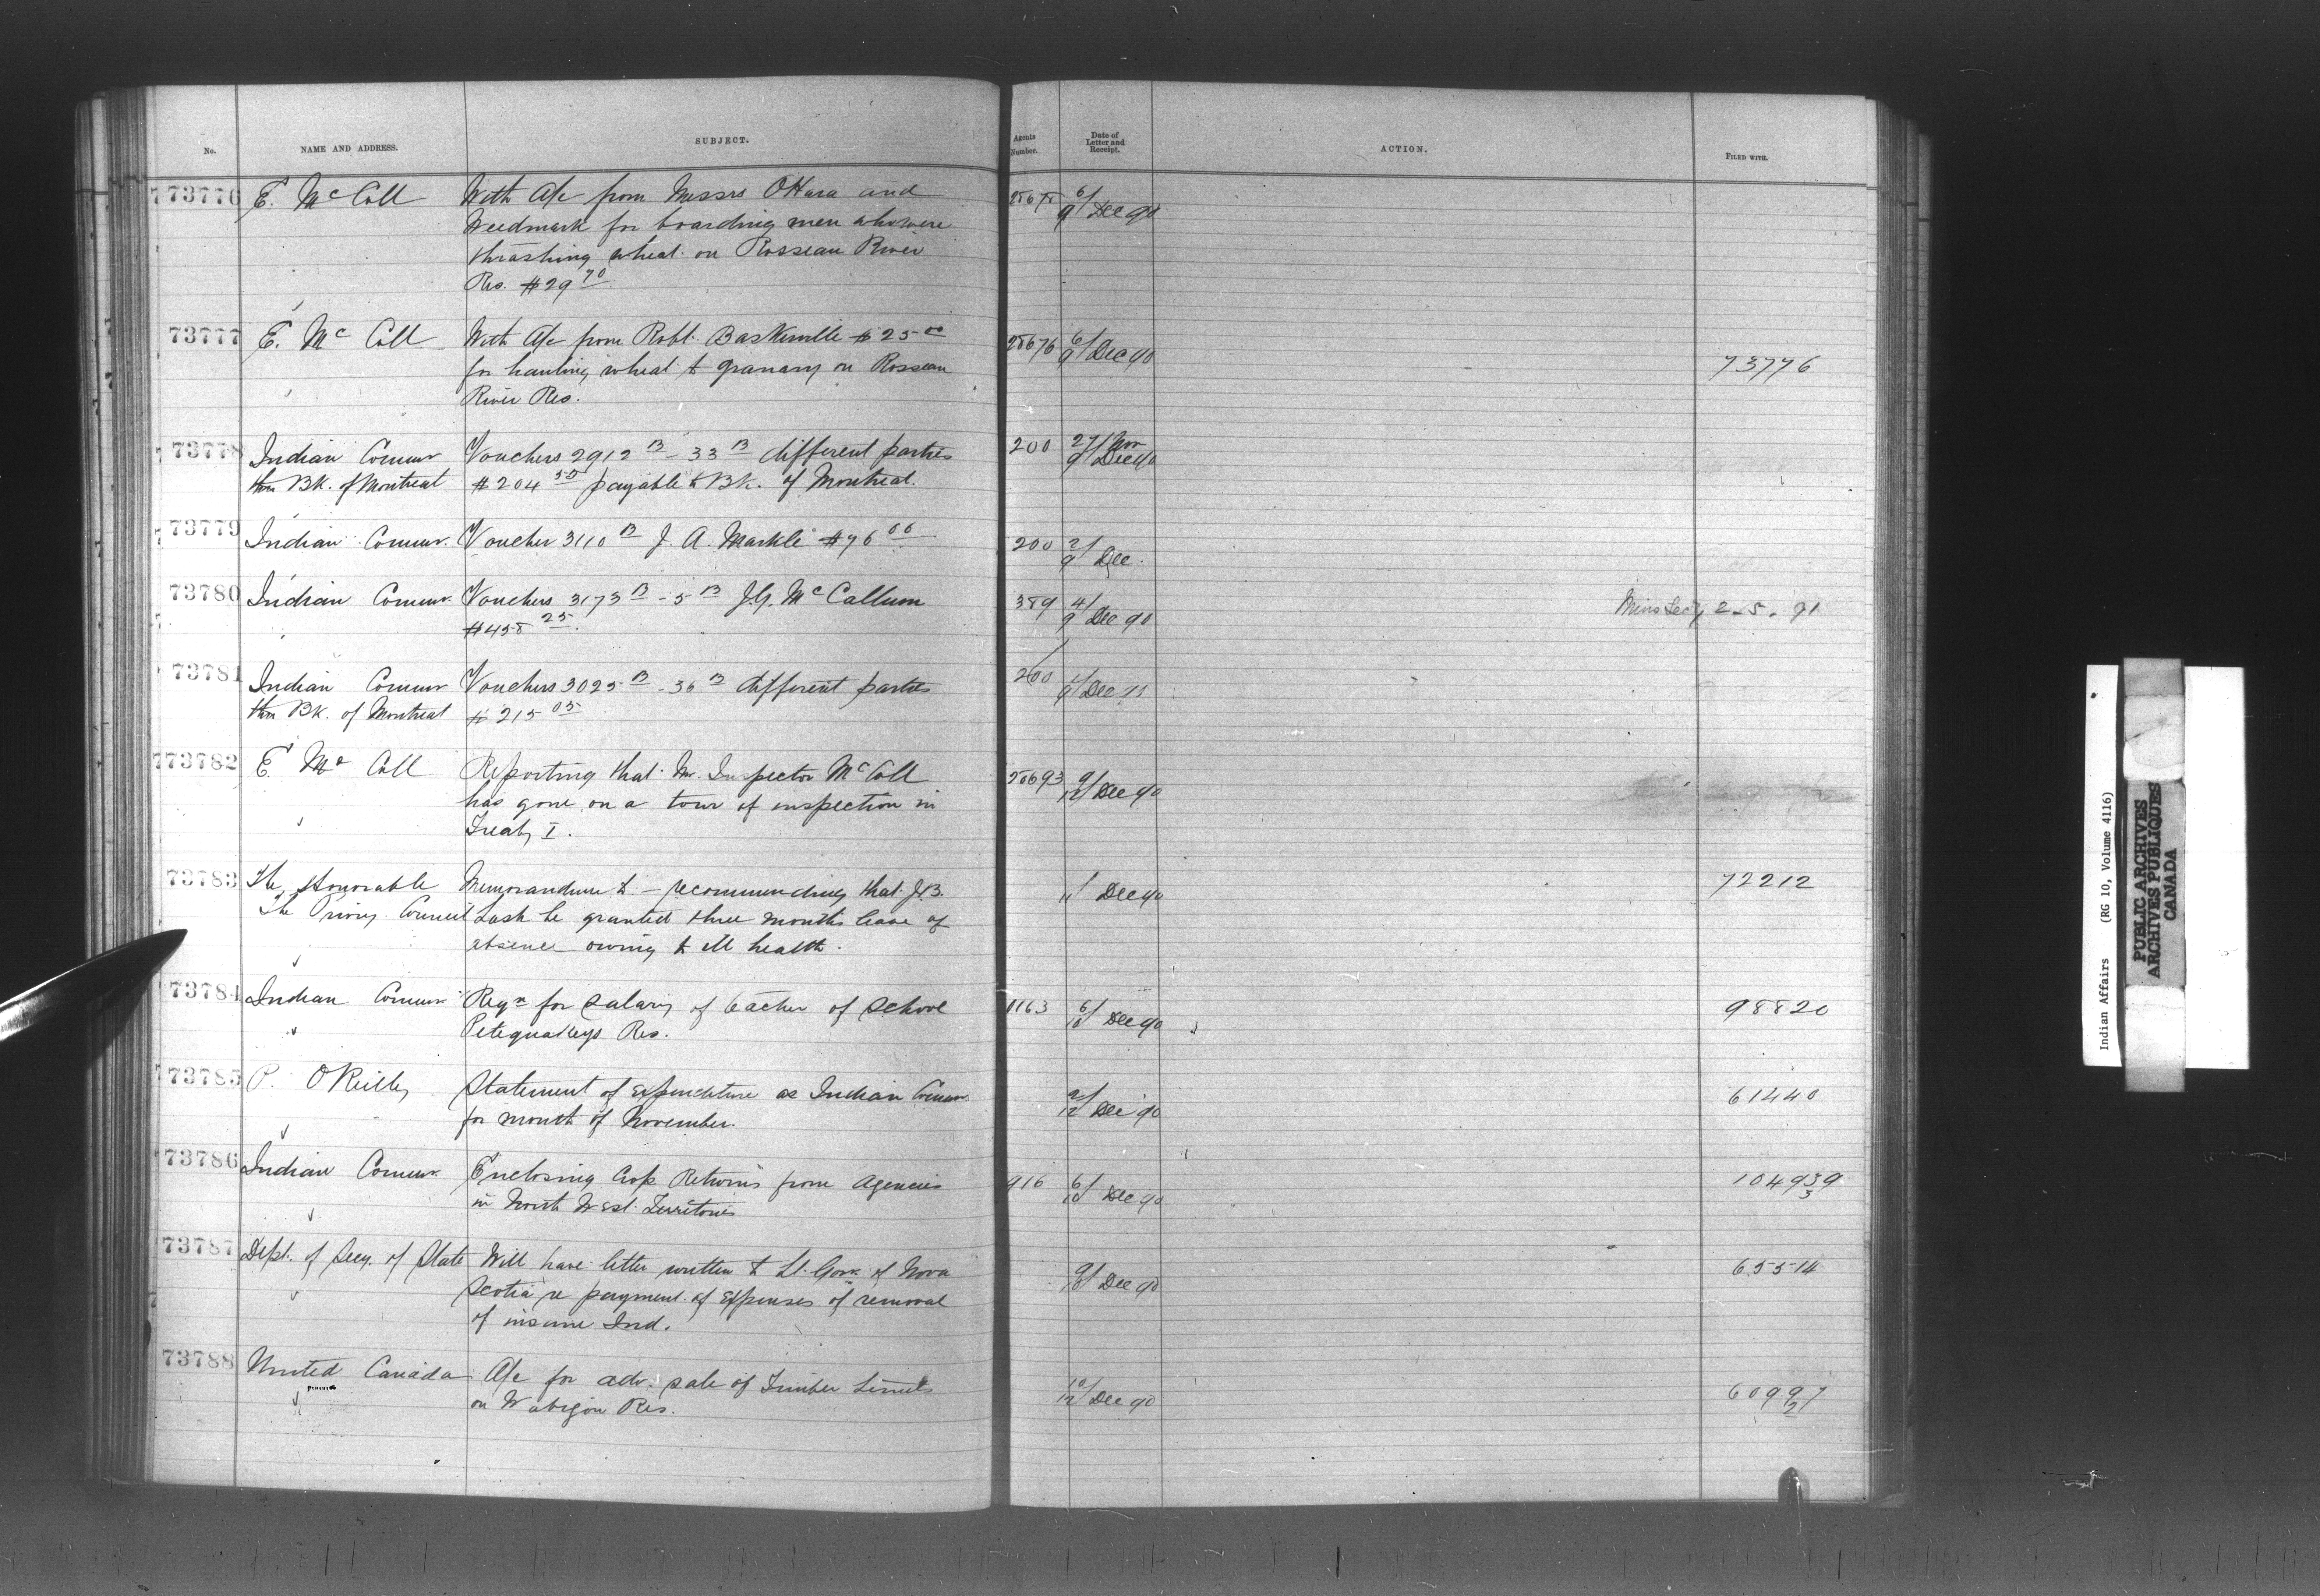 No. NAME AND ADDRESS. SUBJECT. Agents Number. Date of Letter and Receipt. ACTION. FILED WITH.
73776 E. McColl With A/c from Messrs O'Hara and 28675 6/9 Dec 90
Weedmark for boarding men who were
thrashing wheat on Rosseau River
Res. $29 70
73777 E. McColl With A/c from Robt. Baskerville $25 00 28676 6/9 Dec 90
for hauling wheat to granary on Rosseau 73776
River Res.
73778 Indian Commr Vouchers 2912 B - 33 B different parties 200 27 Nov/9 Dec 90
thro BK. of Montreal $204 50 payable to BK. of Montreal.
73779 Indian Commr. Voucher 3110 B J. A. Markle $76 00 200 2/9 Dec.
73780 Indian Commr. Vouchers 3173 B - 5 B J.G. McCallum 389 4/9 Dec 90 2-5-91
$458 25
73781 Indian Commr Vouchers 3025 B - 36 B different parties 200 1/9 Dec
thro BK. of Montreal $215 05
73782 E. McColl Reporting that Mr. Inspector McColl 28693 9/12 Dec 90
has gone on a tour of inspection in
Treaty I.
73783 The Honorable Memorandum to - recommending that J.B. 1/11 Dec 90 72212
The Privy Council Lash be granted three months leave of
absence owing to ill health.
73784 Indian Commr Reqn for salary of teacher of school 1163 6/10 Dec 90 98820
Petequakeys Res.
73785 P. O'Reilly Statement of expenditure as Indian Commr 2/12 Dec 90 61440
for month of November.
73786 Indian Commr. Enclosing Crop Returns from Agencies 916 6/10 Dec 90 104939
in North West Territories 3
73787 Dept. of Secy. of State Will have letter written to Lt. Gov. of Nova 9/10 Dec 90 65514
Scotia re payment of expenses of removal
of insane Ind.
73788 United Canada A/c for adv. sale of Timber Limits 10/12 Dec 90 60997
on Wabigon Res. 2
Indian Affairs (RG 10, Volume 4116)
PUBLIC ARCHIVES
ARCHIVES PUBLIQUES
CANADA